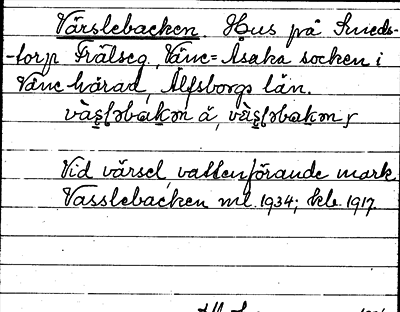 Värslebacken. Hus på Smeds-
-torp Frälseg. Väne-Åsaka socken i
Väne härad, Älfsborgs län.
Vid värsel, vattenförande mark
Vasslebacken ml. 1934; kb. 1917.